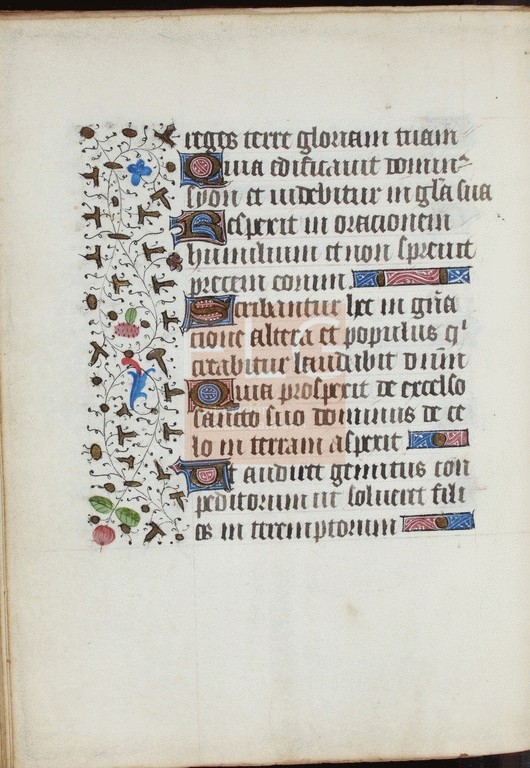 reges terre gloriam tuam
Quia edificavit domin⁹
syon et uidebitur in gl̃a sua
Respexit in oracionem
humilium et non spreuit
precem eorum.
Scribantur hec in gña
cione altera et populus q'
creabitur laudabit dnm̃
Quia prospexit de excelso
sancto suo dominus de ce
lo in terram aspexit
Ut audiret gemitus con
peditorum ut solueret fili
os in teremptorum